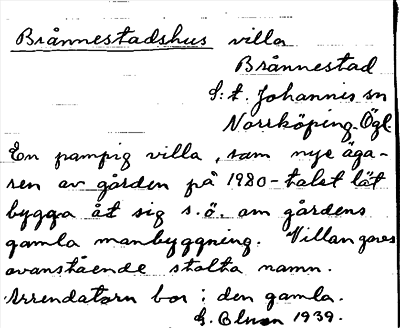 Brånnestadshus villa
Brånnestad
S:t. Johannis sn
Norrköping Ögl.
En pampig villa, som nye äga-
ren av gården på 1920-talet lät
bygga åt sig s.ö. om gårdens
gamla manbyggning. Villan gavs
ovanstående stolta namn.
Arrendatorn bor i den gamla.
G. 1939.